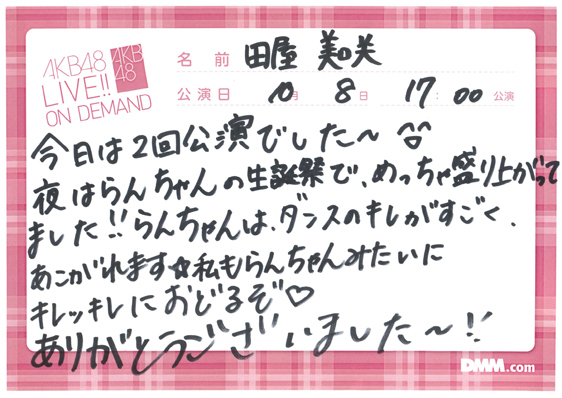 AKB48
LIVE!!
ON DEMAND
AKB
48
名前 田屋 美咲
公演日 10月 8日 17:00公演
今日は2回公演でした〜
夜はらんちゃんの生誕祭で、めっちゃ盛り上がって
ました!!らんちゃんは、ダンスのキレがすごく、
あこがれます☆私もらんちゃんみたいに
キレッキレにおどるぞ♡
ありがとうございました〜!!
DMM.com